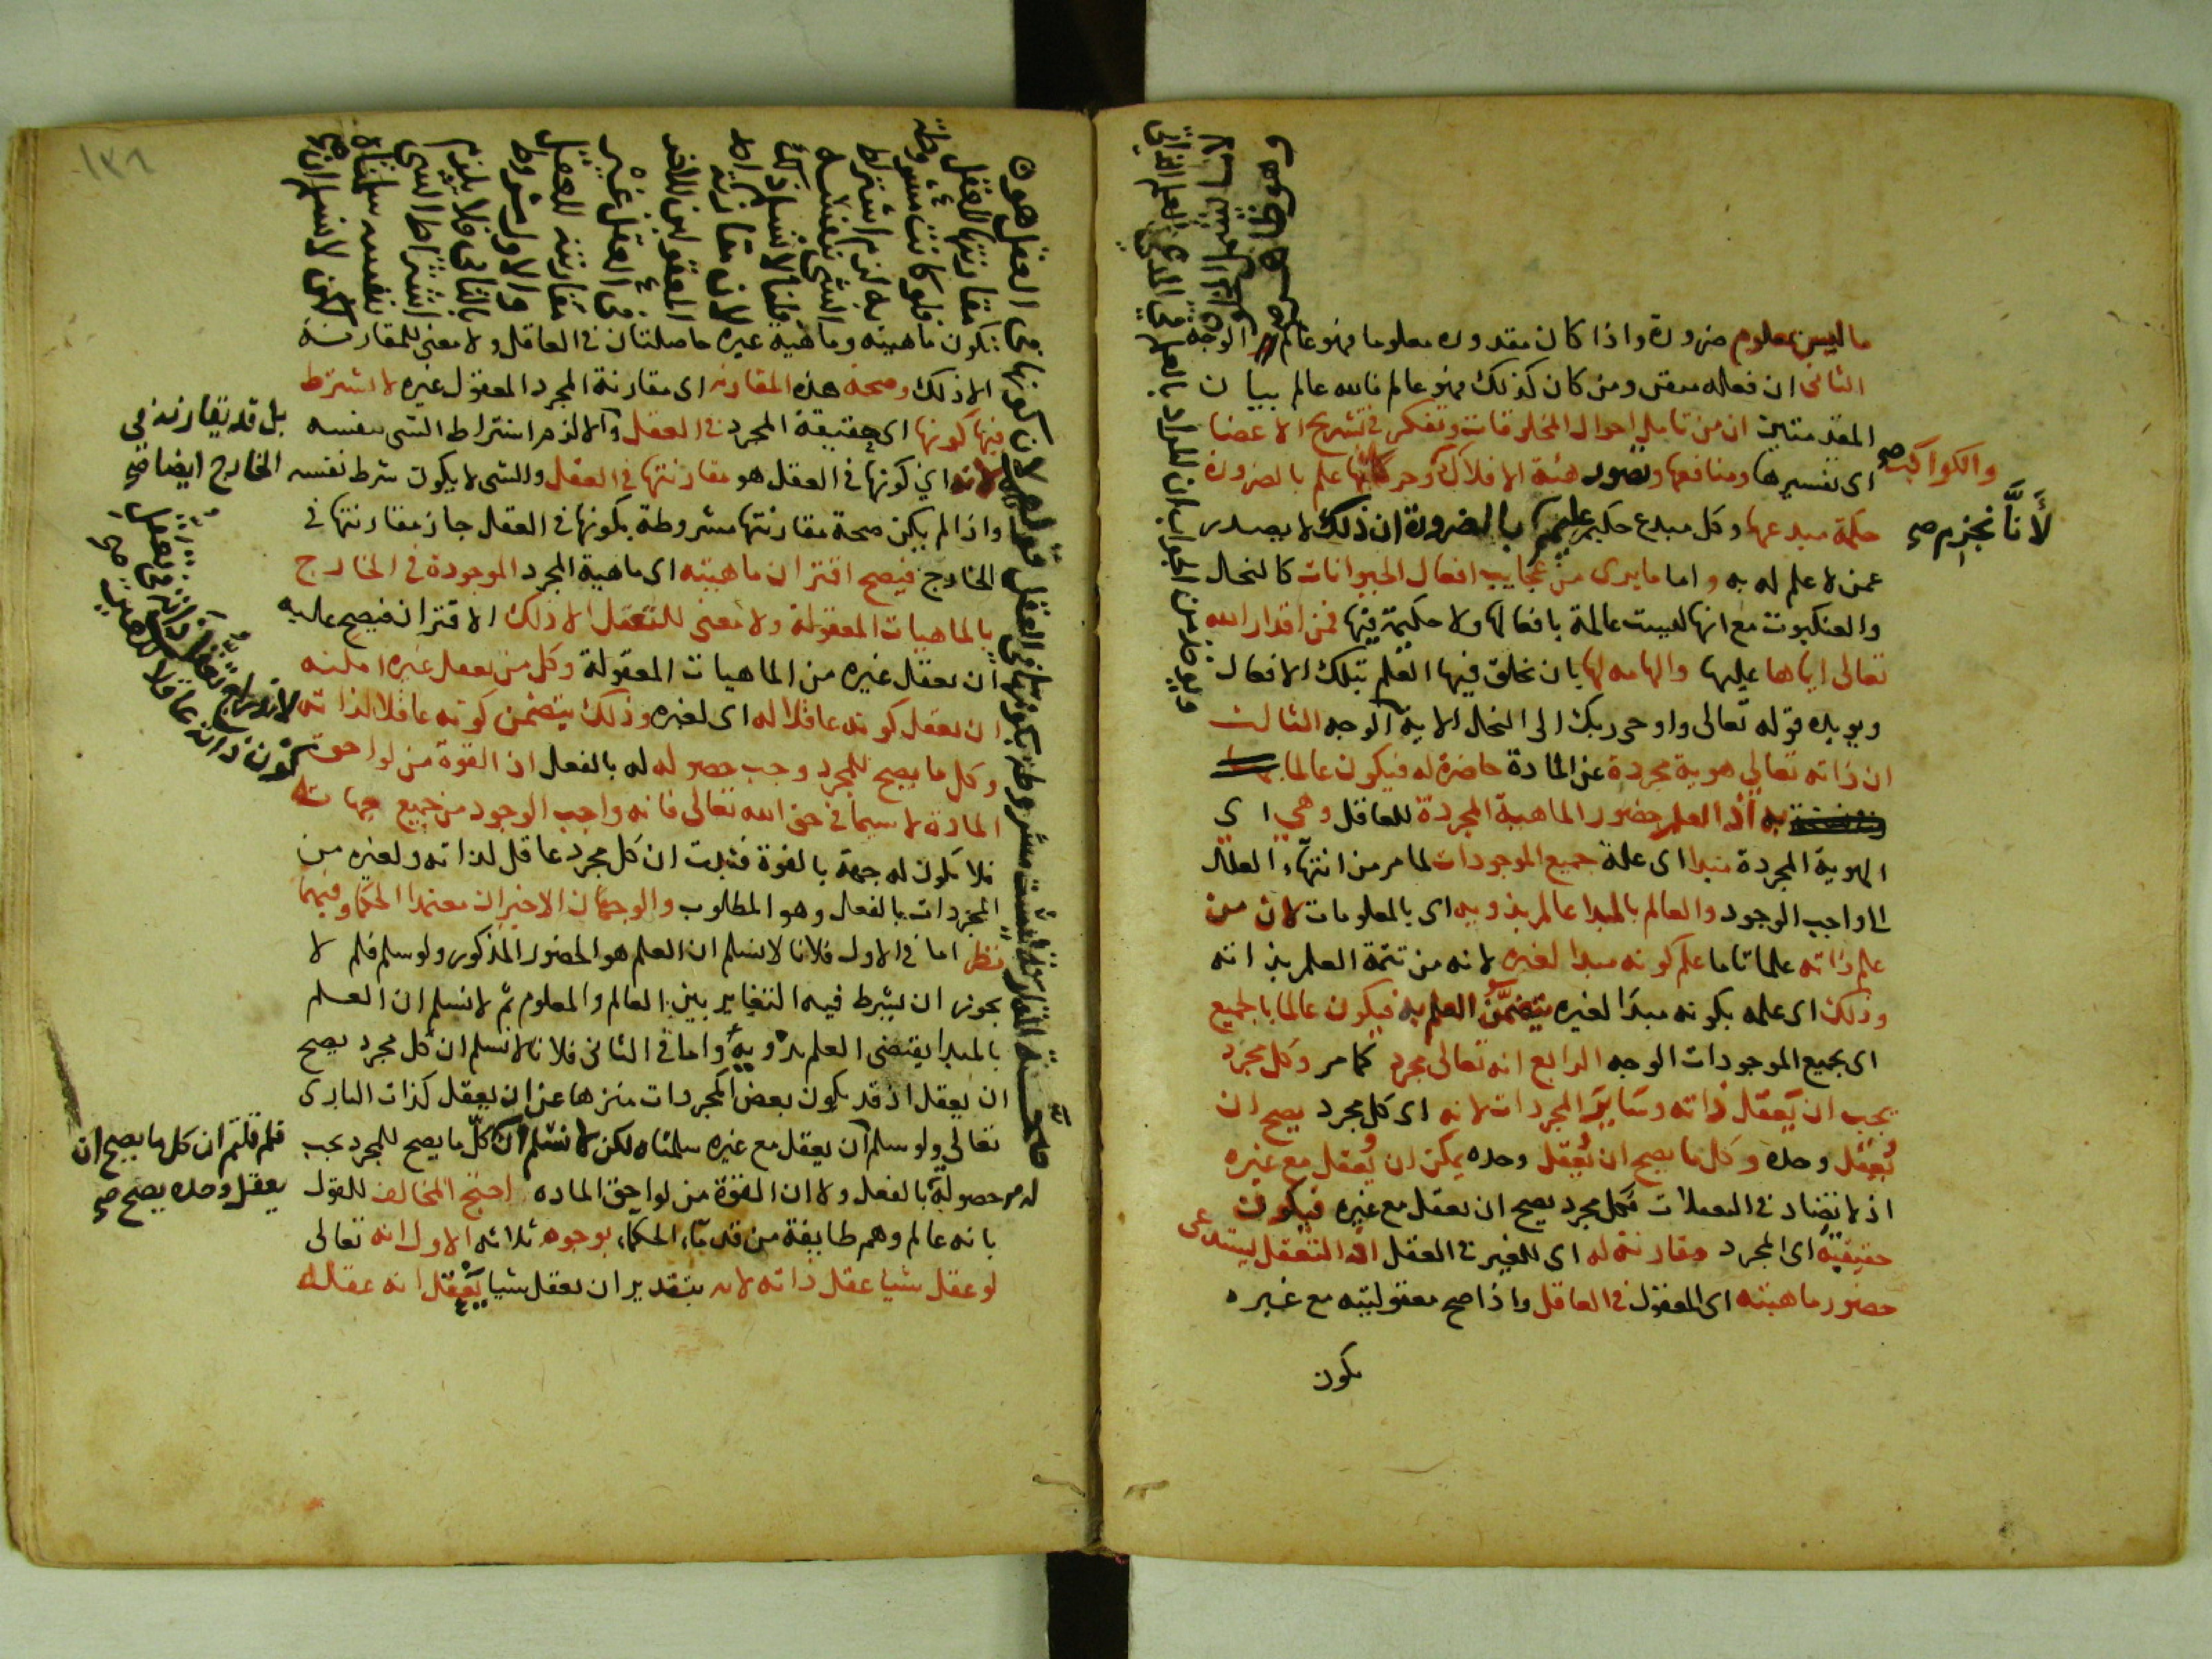 ما ليس بمعلوم ضرورة واذا كان مقدوره معلوما فهو عالم الوجه
الثانى ان فعاله متقن ومن كان كذلك فهو عالم فالله عالم بيان
المقدمتين ان من تامل احوال المخلوقات وتفكر فى تشريح الاعضا
اى تفسيرها ومنافعها وتصور هئة الافلاك وحركاتها علم بالضرورة
والكواكب صح
حكمة مبدعها وكل مبدع حكيم عليم بالضرورة ان ذلك لا يصدر
لأنَّا نجزم صح
عمن لا علم له به واما مايرى من عجايب افعال الحيوانات كالنحل
والعنكبوت مع انها ليست عالمة بافعالها ولا حكيمة فيها فمن اقدار الله
تعالى اياها عليها والهامه لها بان يخلق فيها العلم بتلك الافعال
ويويده قوله تعالى واوحى ربك الى النحل الاية الوجه الثالث
ان ذاته تعالى هوية مجردة عن المادة حاضرة له فيكون عالما
به اذ العلم حضور الماهية المجردة للعاقل وهى اى
الهوية المجردة مبدا اى علة جميع الموجودات لما مر من انتهاء العلل
الى واجب الوجود والعالم بالمبدا عالم بذويه اى بالمعلومات لان من
علم ذاته علما تاما علم كونه مبدا لغيره لانه من تتمة العلم بذاته
وذلك اى علمه بكونه مبدا لغيره يتضمَّن العلم به فيكون عالما بالجميع
اى بجميع الموجودات الوجه الرابع انه تعالى مجرد كما مر وكل مجرد
يجب ان يَعقل ذاته وسَايرَ المجردات لانه اى كل مجرد يصح ان
يُعقل وحده وكل ما يصح ان يُعقل وحده يمكن ان يُعقل مع غيره
اذ لا تضاد فى التعقلات فكل مجرد يصح ان يعقل مع غيره فيكون
حقيقته اى المجرد مقارنة له اى للغير فى العقل اذ التعقل يستدعى
حضور ماهيته اى المعقول فى العاقل واذا صح معقوليته مع غيره
يكون
١٣٦
العقل هو
مقارنتها للعقل
فلو كانت مشروطة
به لزم اشتراط
الشى بنفسه
لان مقارنة
المعقولين
فى العقل غير
مقارنته للعقل
والاول مشروط
بالثانى فلا يلزم
اشتراط الشى
بنفسه سلمناه
لكن لا نسلم ان
يكون ماهيته وماهية غيره حاصلتان فى العاقل ولا معنى للمقارنة
الا ذلك وصحة هذه المقارنه اى مقارنة المجرد المعقول غيره لا يشترط
فيها كونها اى حقيقة المجرد فى العقل والا لزم اشتراط الشى بنفسه
بل قد يقارنه فى
الخارج ايضا صح
لانه اى كونها فى العقل هو مقارنتها فى العقل والشى لا يكون شرط نفسه
واذا لم يكن صحة مقارنتها مشروطة بكونها فى العقل جاز مقارنتها فى
الخارج فيصح اقتران ماهيته اى ماهية المجرد الموجودة فى الخارج
بالماهيات المعقولة ولا معنى للتعقل الا ذلك الاقتران فيصح عليه
ان يعقل غيره من الماهيات المعقولة وكل من يعقل غيره امكنه
ان يعقل كونه عاقلا له اى لغيره وذلك يتضمن كونه عاقلا لذاته
وكل ما يصح للمجرد وجب حصوله له بالفعل اذ القوة من لواحق
المادة لا سيما فى حق الله تعالى فانه واجب الوجود من جميع جهاته
فلا يكون له جهة بالقوة فثبت ان كل مجرد عاقل لذاته ولغيره من
المجردات بالفعل وهو المطلوب والوجهان الاخيران معتمدا الحكما وفيهما
نظر اما فى الاول فلانا لا نسلم ان العلم هو الحضور المذكور ولو سلم فلم لا
يجوز ان يشرط فيه التغاير بين العالم والمعلوم ثم لا نسلم ان العلم
بالمبدا يقتضى العلم بذويه واما فى الثانى فلانا لا نسلم ان كل مجرد يصح
ان يعقل اذ قد يكون بعض المجردات منزها عن ان يعقل كذات البارى
تعالى ولو سلم ان يعقل مع غيره سلمناه لكن لا نسلم ان كل ما يصح للمجرد يجب
فلم قلتم ان كل ما يصح ان
يعقل وحده يصح صح
له حصوله بالفعل ولا ان القوة من لواحق الماده احتج المخالف للقول
بانه عالم وهم طايفة من قدماء الحكماء بوجوه ثلاثه الاول انه تعالى
لو عقل شيا عقل ذاته لانه بتقدير ان يعقل شيا يَعقل انه عقله